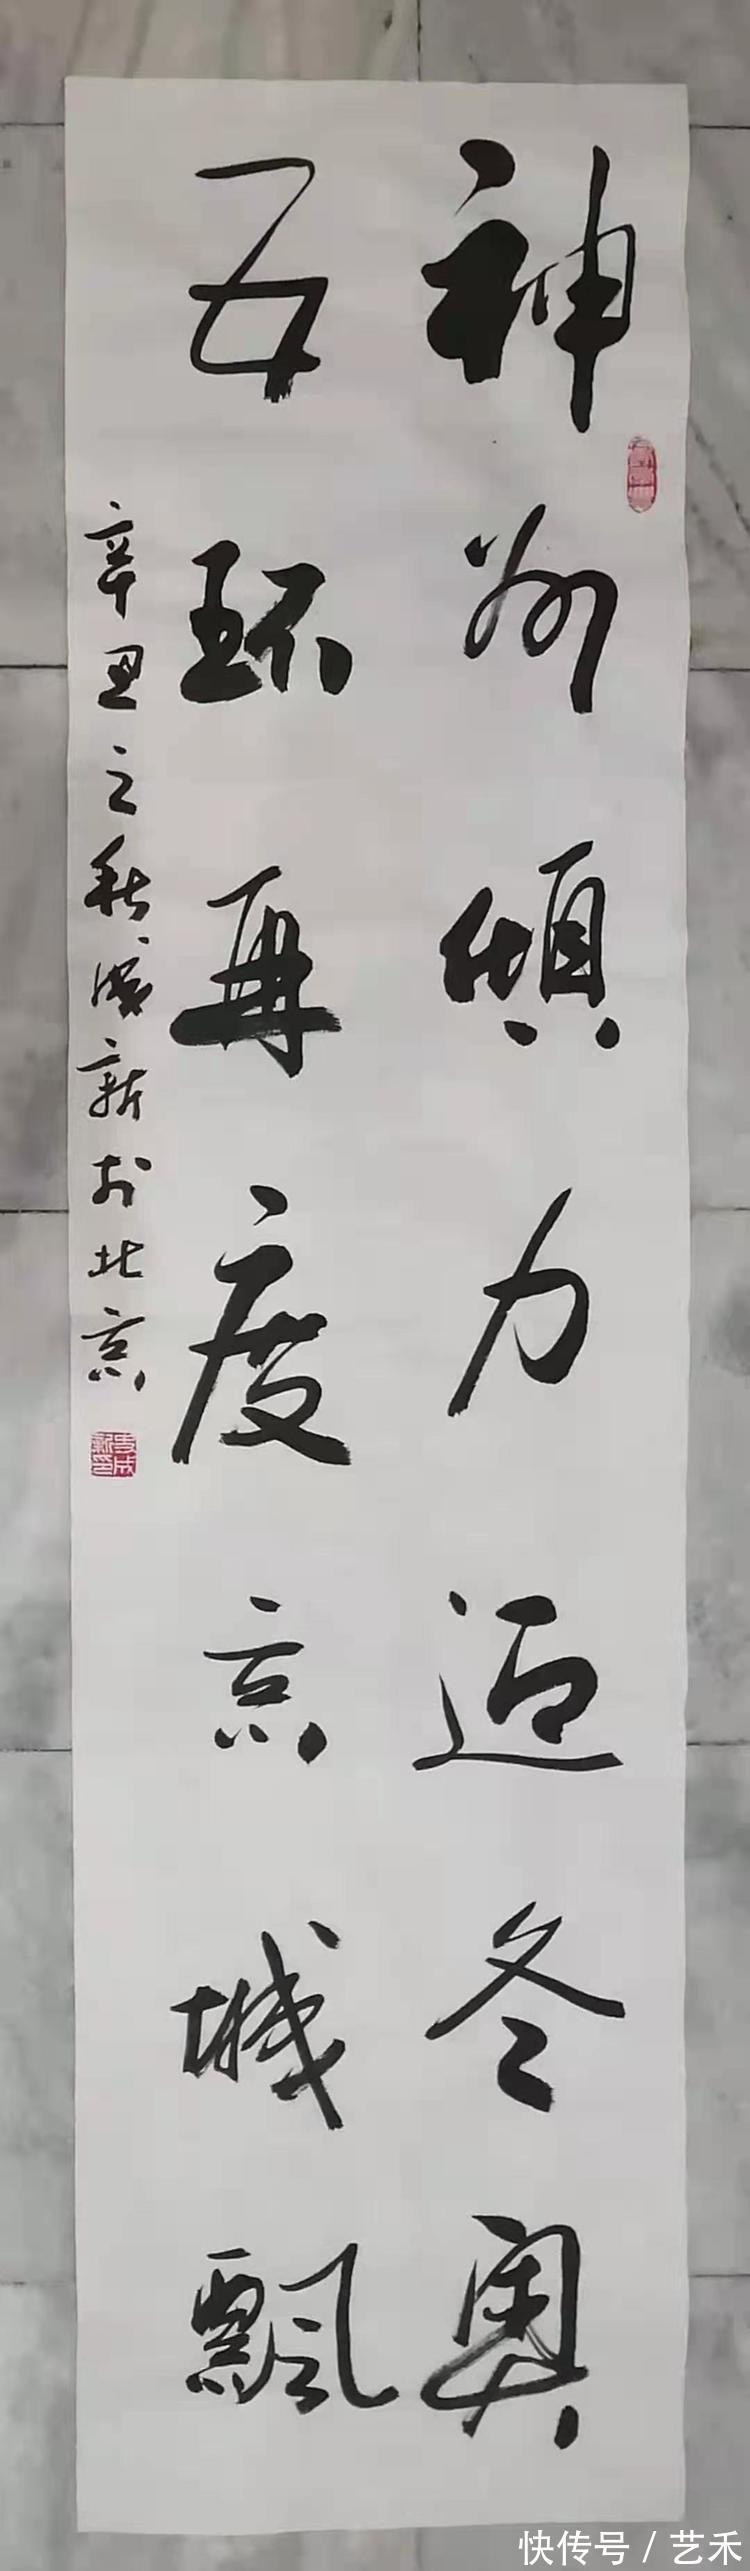 神州倾力迎冬奥
五环再度京城飘
辛丑之秋成新于北京
快传号 / 艺禾